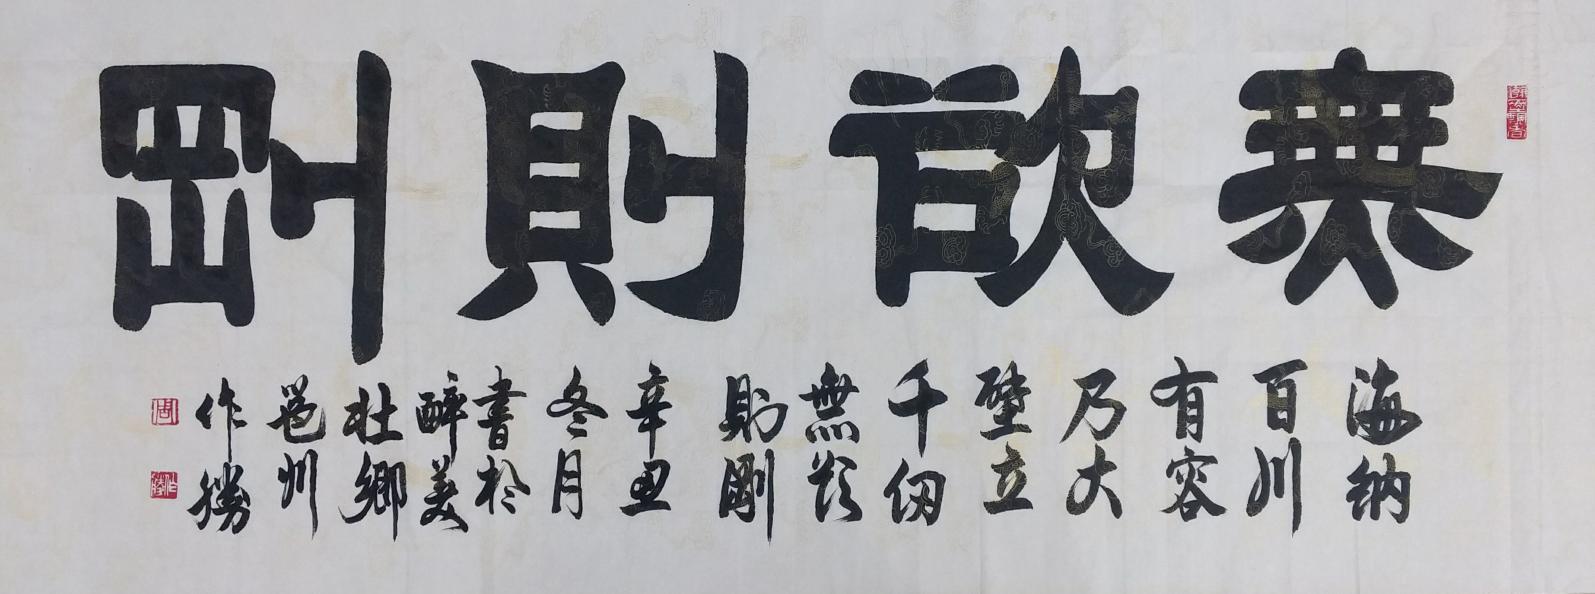 無欲則剛
海纳
百川
有容
乃大
壁立
千仞
無欲
則剛
辛丑
冬月
書於
醉美
壯鄉
邕州
作勝
周
作勝